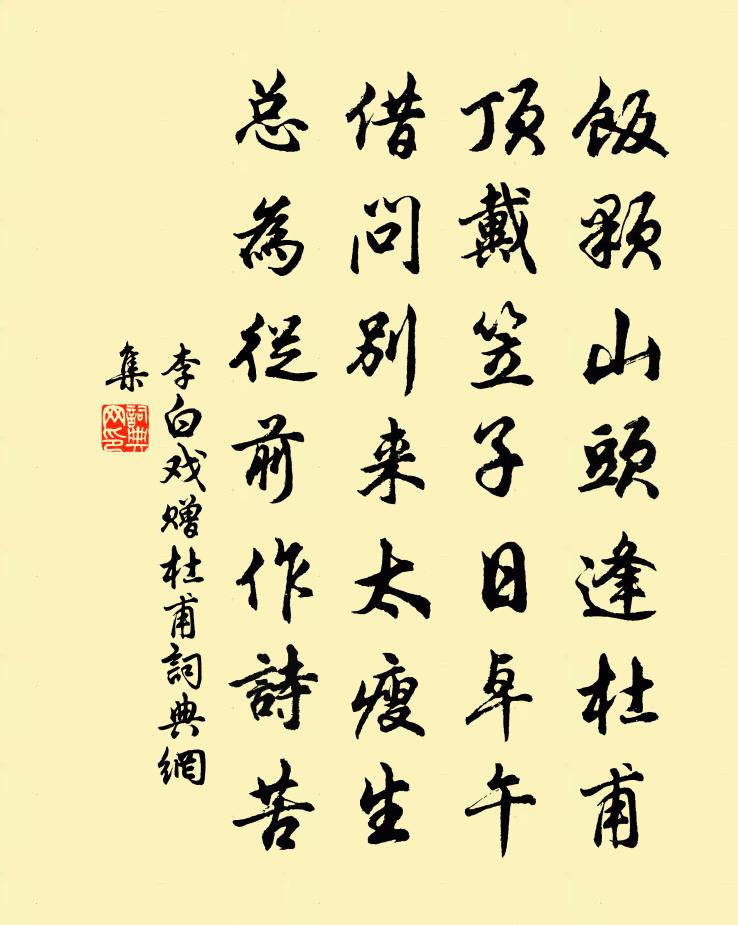 飯顆山頭逢杜甫
頂戴笠子日卓午
借问别来太瘦生
总為從前作詩苦
李白戏赠杜甫詞典網
集
詞典
网印